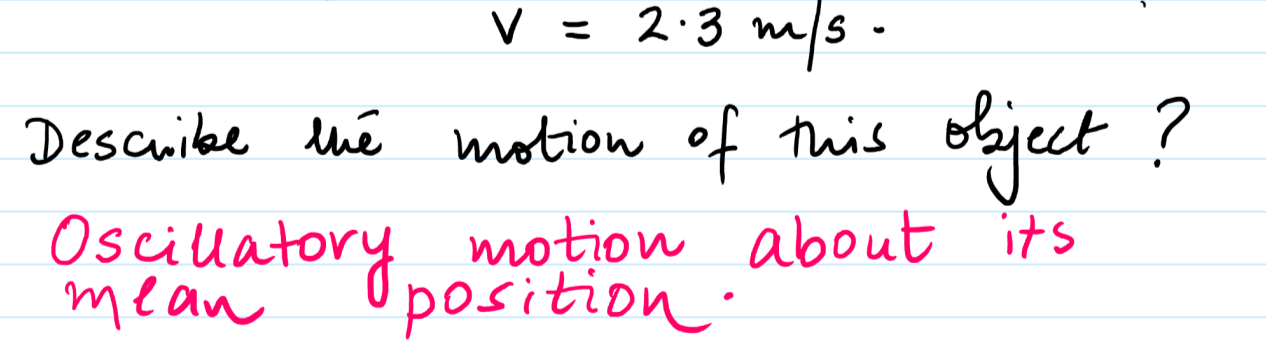 V = 2.3 m/s.
Describe the motion of this object ?
Oscillatory motion about its
mean position.